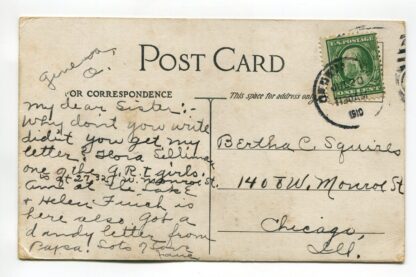 POST CARD
FOR CORRESPONDENCE
This space for address only
U.S. POSTAGE
ONE CENT
1910
My dear Sister:-
Why don't you write
did't you get my
letter? Flora Sillman
one of the G.R.I. girls.
Monroe St.
& Helen Finch is
here also. Got a
dandy letter from
Papsa. Lots of Love
Bertha C. Squires
1408 W. Monroe St
Chicago,
Ill.